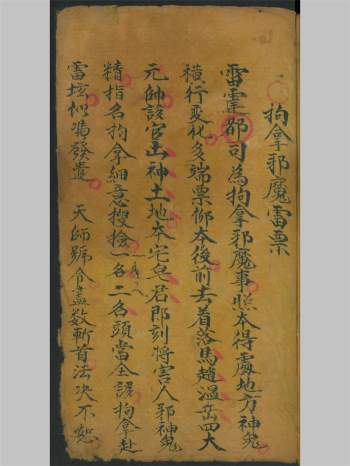 拘拿邪魔雷票
雷霆都司為拘拿邪魔事照本得處地方神鬼
橫行变化多端票仰本後前去着落馬趙温岳四大
元帥該官山神土地本宅皂君即刻將害人邪神鬼
精指名拘拿細意搜捡一名二名頭當全該拘拿赴
雷坛似馮發遣 天師號令盡数斬首法决不恕